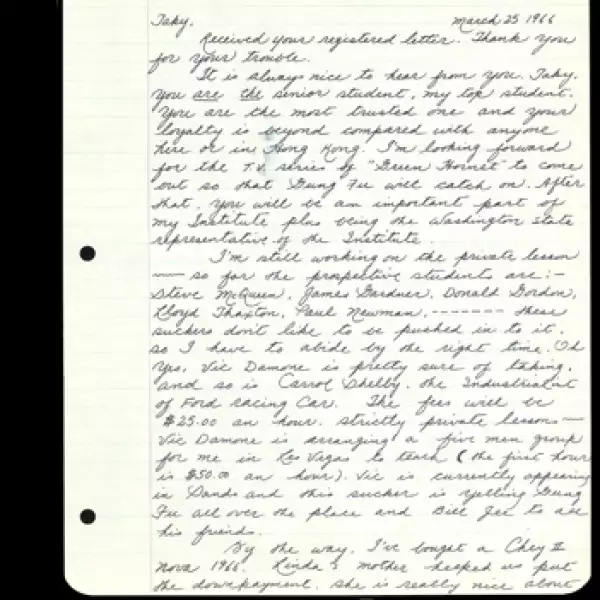 Taky,                                March 25 1966
Received your registered letter. Thank you
for your trouble.
It is always nice to hear from you. Taky.
You are the senior student, my top student.
You are the most trusted one and your
loyalty is beyond compared with anyone
here or in Hong Kong. I'm looking forward
for the T.V. series of "Green Hornet" to come
out so that Gung Fu will catch on. After
that, you will be an important part of
my Institute plus being the Washington State
representative of the Institute.
I'm still working on the private lesson
—— so far the prospective students are :-
Steve McQueen, James Gardner, Donald Gordon,
Lloyd Thaxton, Paul Newman, ------- these
suckers don't like to be pushed in to it.
so I have to abide by the right time. Oh
yes, Vic Damone is pretty sure of taking,
and so is Carrol Shelby, the Industrialist
of Ford racing Car. The fees will be
$25.00 an hour. strictly private lessons —
Vic Damone is arranging a five men group
for me in Las Vegas to teach ( the first hour
is $50.00 an hour). Vic is currently appearing
in Sands and this sucker is yelling Gung
Fu all over the place and Bill Jee to all
his friends.
By the way, I've bought a Chev II
Nova 1966. Linda's mother helped us put
the downpayment. She is really nice about